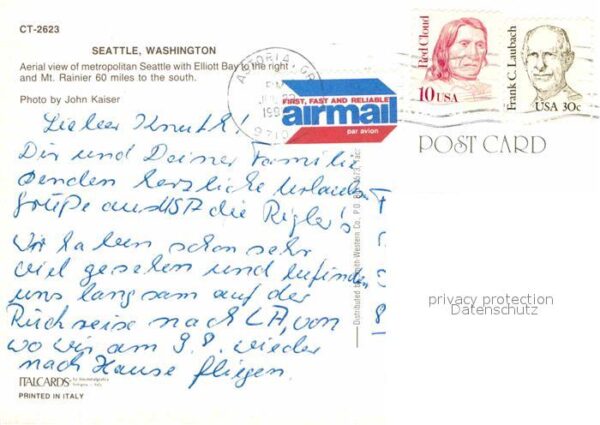 CT-2623
SEATTLE, WASHINGTON
Aerial view of metropolitan Seattle with Elliott Bay to the right
and Mt. Rainier 60 miles to the south.
Photo by John Kaiser
ASTORIA, OR
PM
FIRST, FAST AND RELIABLE
airmail
par avion
Red Cloud
10 USA
Frank C. Laubach
USA 30c
POST CARD
Lieber
Dir und Deiner Familie
senden herzliche Urlaubs
grüße aus USA die Rigler's
Wir haben schon sehr
viel gesehen und befinden
uns langsam auf der
Rückreise nach LA, von
wo wir am 9.8. wieder
nach Hause fliegen.
Distributed by Smith-Western Co.,
privacy protection
Datenschutz
ITALCARDS
PRINTED IN ITALY